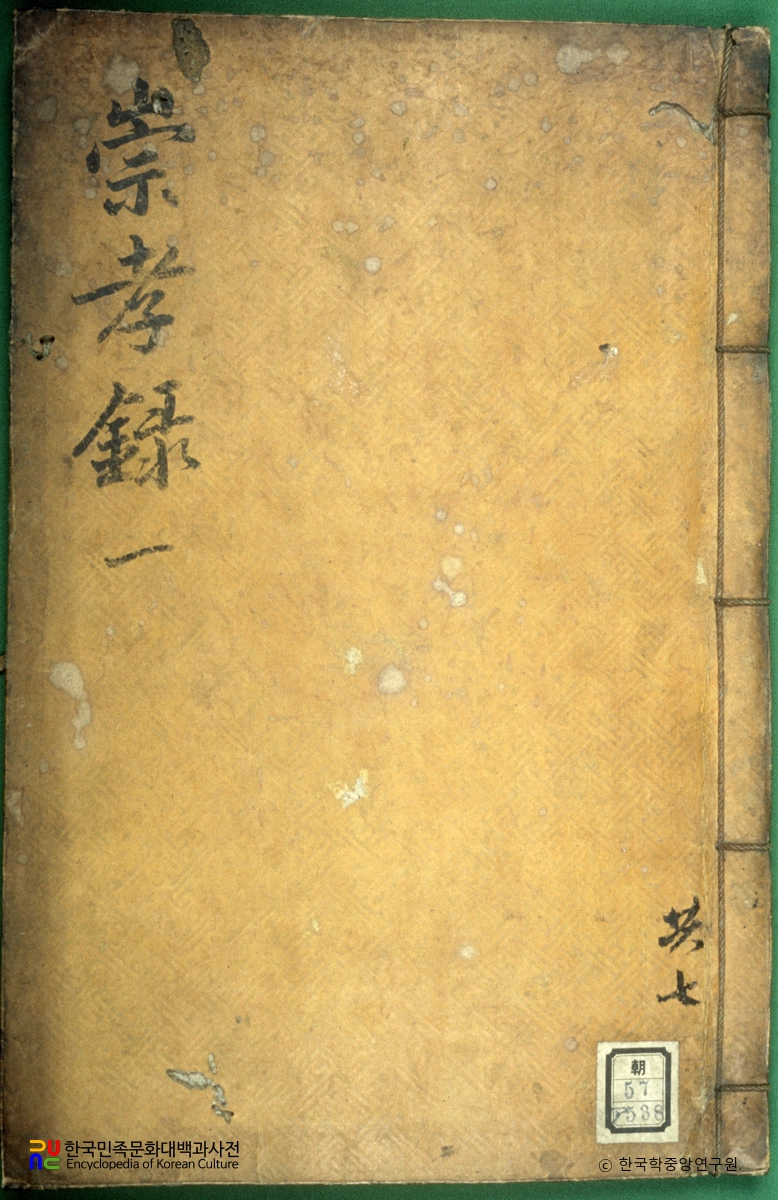 崇孝錄 一
共七
朝
57
538
한국민족문화대백과사전
Encyclopedia of Korean Culture
ⓒ 한국학중앙연구원